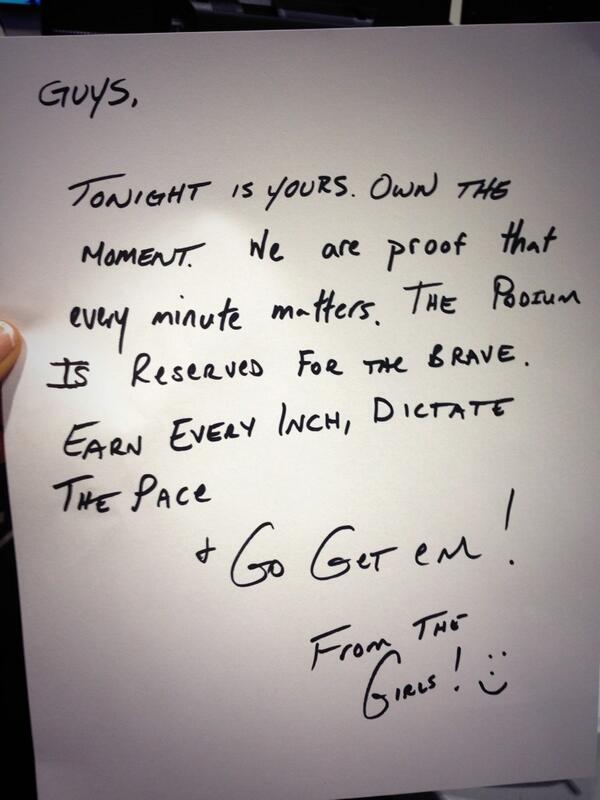 GUYS,
TONIGHT IS YOURS. OWN THE
MOMENT. We are proof that
every minute matters. THE PODIUM
IS RESERVED FOR THE BRAVE.
EARN EVERY INCH, DICTATE
THE PACE
+ GO GET EM!
FROM THE
GIRLS! :)